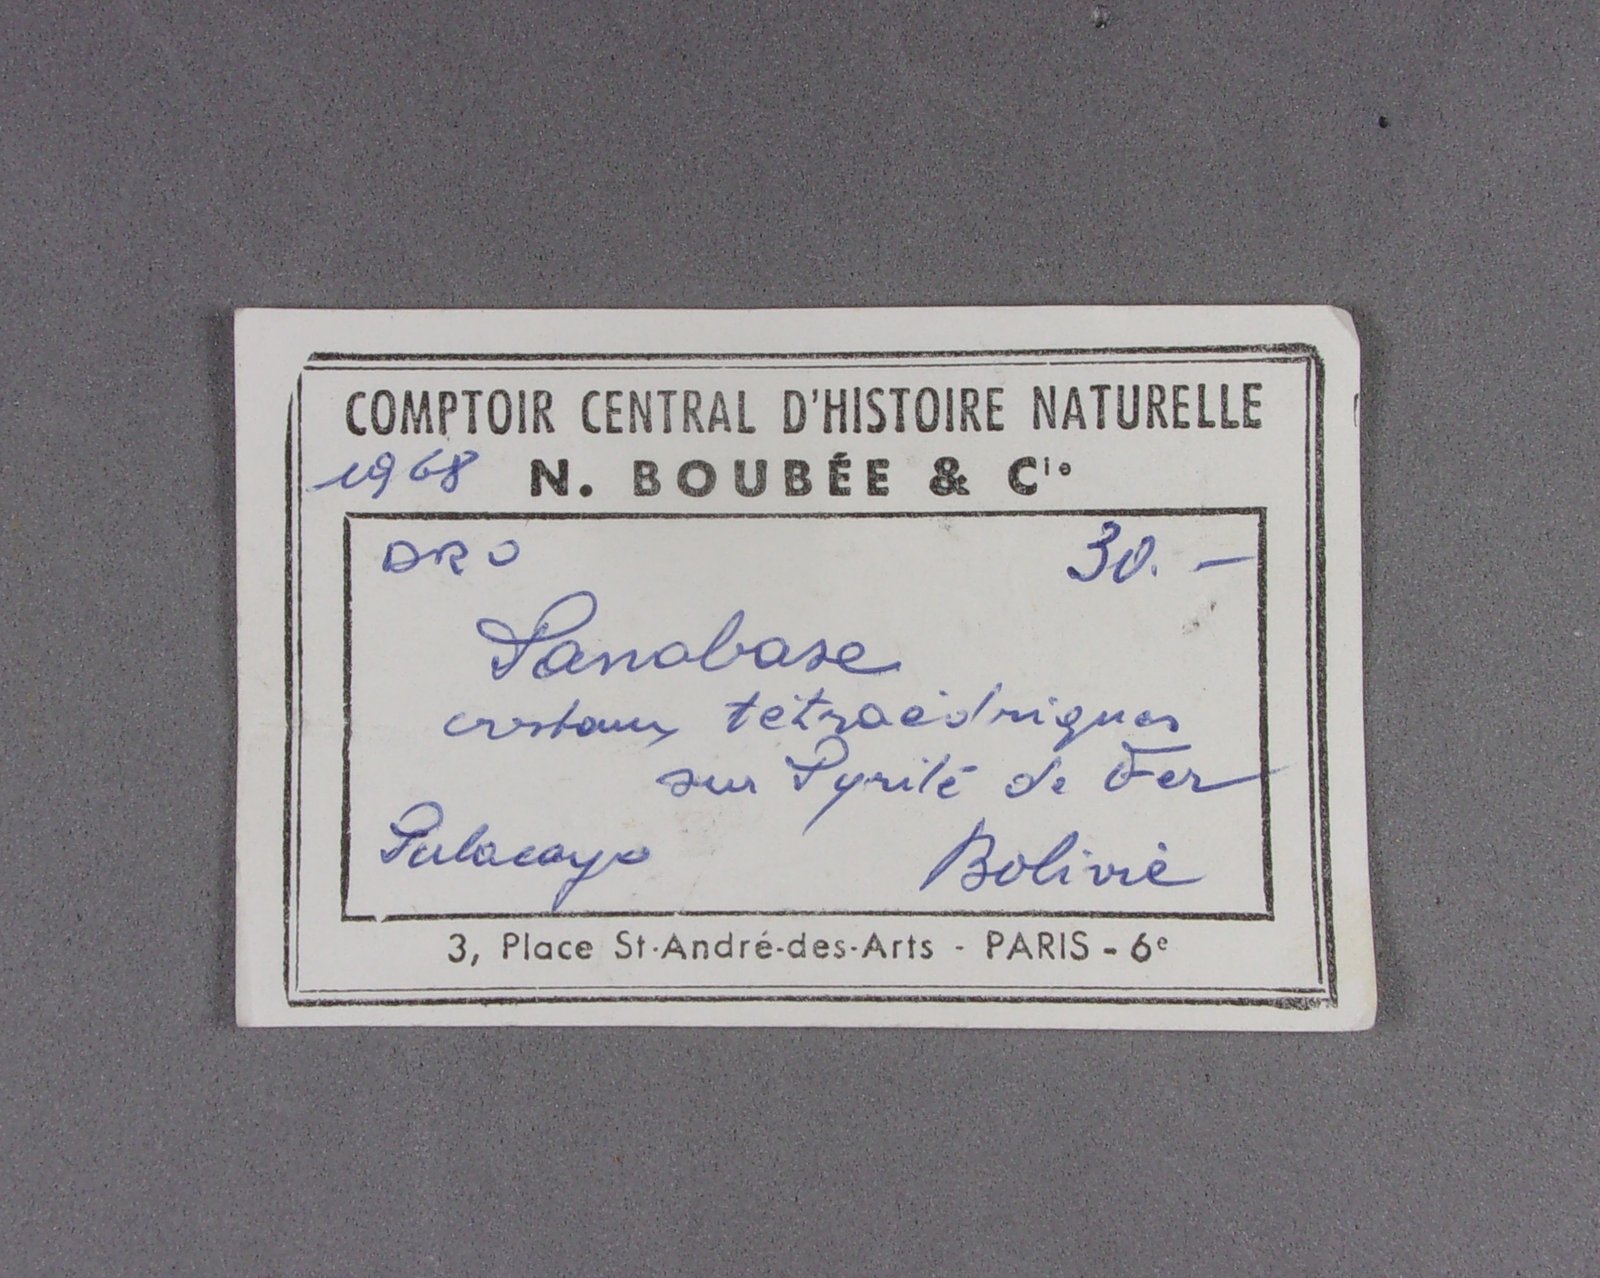 COMPTOIR CENTRAL D'HISTOIRE NATURELLE
1968 N. BOUBÉE & Cie
DRO 30. —
Panabase
cristaux tétraèdriques
sur Pyrite de Fer
Pulacayo Bolivie
3, Place St-André-des-Arts - PARIS - 6e